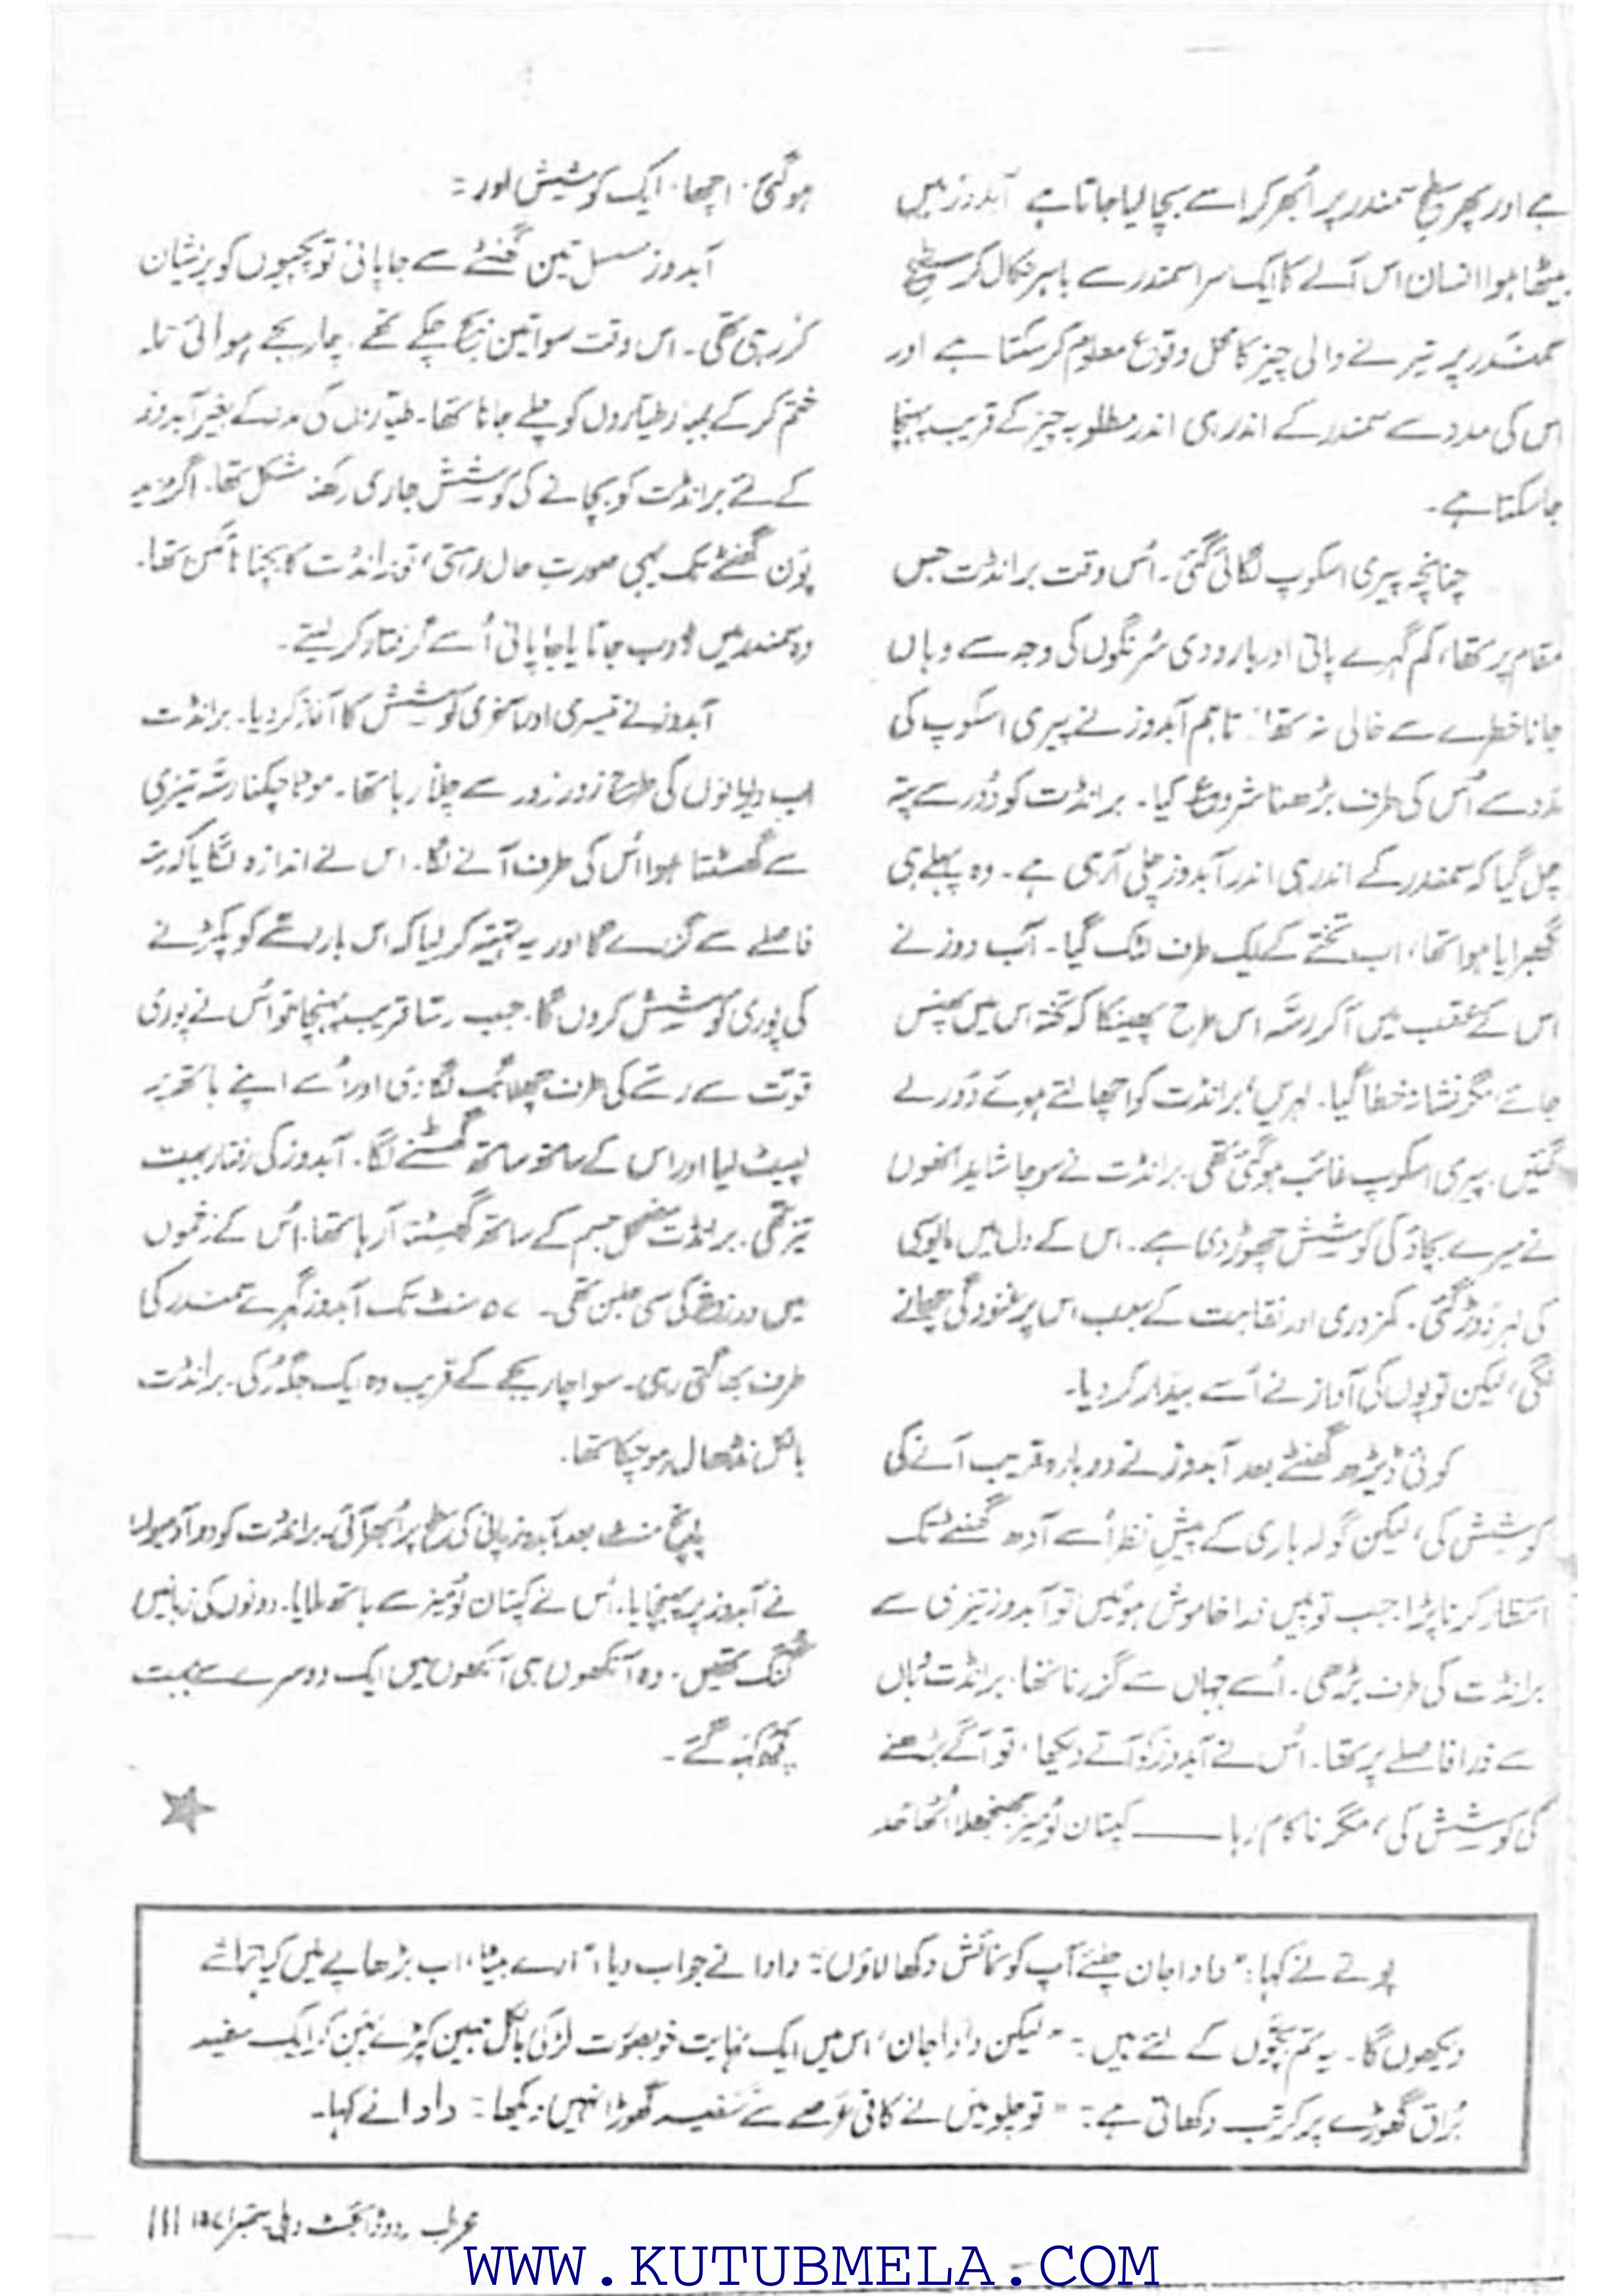 ہے اور پھر سطح سمندر پر اُبھر کر اسے بچا لیا جاتا ہے آبدوز میں
بیٹھا ہوا انسان اس آلے کا ایک سرا سمندر سے باہر نکال کر سطح
سمندر پر تیرنے والی چیز کا محل وقوع معلوم کر سکتا ہے اور
اس کی مدد سے سمندر کے اندر ہی اندر مطلوبہ چیز کے قریب پہنچا
جا سکتا ہے۔
چنانچہ پیری اسکوپ لگائی گئی۔ اُس وقت برانڈٹ جس
مقام پر تھا، کم گہرے پانی اور بارودی سُرنگوں کی وجہ سے وہاں
جانا خطرے سے خالی نہ تھا، تاہم آبدوز نے پیری اسکوپ کی
مدد سے اُس کی طرف بڑھنا شروع کیا۔ برانڈٹ کو دُور سے پتہ
چل گیا کہ سمندر کے اندر ہی اندر آبدوز چلی آ رہی ہے۔ وہ پہلے ہی
گھبرایا ہوا تھا، اب تختے کے ایک طرف لٹک گیا۔ آب دوز نے
اس کے عقب میں آ کر رسّہ اس طرح پھینکا کہ تختہ اس میں پھنس
جائے، مگر نشانہ خطا گیا۔ لہریں برانڈٹ کو اچھالتے ہوئے دُور لے
گئیں۔ پیری اسکوپ غائب ہو گئی تھی۔ برانڈٹ نے سوچا شاید انھوں
نے میرے بچاؤ کی کوشش چھوڑ دی ہے۔ اس کے دل میں مایوسی
کی لہر دَوڑ گئی۔ کمزوری اور نقاہت کے سبب اس پر غنودگی چھانے
لگی، لیکن توپوں کی آواز نے اُسے بیدار کر دیا۔
کوئی ڈیڑھ گھنٹے بعد آبدوز نے دوبارہ قریب آنے کی
کوشش کی، لیکن گولہ باری کے پیش نظر اُسے آدھ گھنٹے تک
انتظار کرنا پڑا۔ جب توپیں ذرا خاموش ہوئیں تو آبدوز تیزی سے
برانڈٹ کی طرف بڑھی۔ اُسے جہاں سے گزرنا تھا، برانڈٹ وہاں
سے ذرا فاصلے پر تھا۔ اُس نے آبدوز کو آتے دیکھا، تو آگے بڑھنے
کی کوشش کی، مگر ناکام رہا —— کپتان ٹومیز جھنجھلا اُٹھا
ہو گئی۔ اچھا۔ ایک کوشش اور :
آبدوز مسلسل تین گھنٹے سے جاپانی توپچیوں کو پریشان
کر رہی تھی۔ اس وقت سوا تین بج چکے تھے۔ چار بجے ہوائی
ختم کر کے بمبار طیاروں کو چلے جانا تھا۔ طیاروں کی مدد کے بغیر آبدوز
کے لئے برانڈٹ کو بچانے کی کوشش جاری رکھنا مشکل تھا۔ اگر مزید
پون گھنٹے تک یہی صورتِ حال رہتی، تو برانڈٹ کا بچنا ناممکن تھا۔
وہ سمندر میں ڈوب جاتا یا جاپانی اُسے گرفتار کر لیتے۔
آبدوز نے تیسری اور آخری کوشش کا آغاز کر دیا۔ برانڈٹ
اب دیوانوں کی طرح زور زور سے چلا رہا تھا۔ موٹا چکنا رسّہ تیزی
سے گھسٹتا ہوا اُس کی طرف آنے لگا۔ اس نے اندازہ لگایا کہ رسّہ
فاصلے سے گزرے گا اور یہ تہیّہ کر لیا کہ اس بار رسّے کو پکڑنے
کی پوری کوشش کروں گا۔ جب رسّا قریب پہنچا تو اُس نے پوری
قوّت سے رسّے کی طرف چھلانگ لگا دی اور اُسے اپنے ہاتھ پر
لپیٹ لیا اور اس کے ساتھ ساتھ گھسٹنے لگا۔ آبدوز کی رفتار بہت
تیز تھی۔ برانڈٹ مضمحل جسم کے ساتھ گھسٹتا آ رہا تھا۔ اُس کے زخموں
میں دوزخ کی سی جلن تھی۔ ۵۷ منٹ تک آبدوز گہرے سمندر کی
طرف بھاگتی رہی۔ سوا چار بجے کے قریب وہ ایک جگہ رُکی۔ برانڈٹ
بالکل نڈھال ہو چکا تھا۔
پانچ منٹ بعد آبدوز پانی کی سطح پر اُبھر آئی۔ برانڈٹ کو دو آدمیوں
نے آبدوز پر پہنچایا۔ اُس نے کپتان ٹومیز سے ہاتھ ملایا۔ دونوں کی زبانیں
گنگ تھیں۔ وہ آنکھوں ہی آنکھوں میں ایک دوسرے سے بہت
کچھ کہہ گئے۔
پوتے نے کہا: "دادا جان چلئے آپ کو نمائش دکھا لاؤں"۔ دادا نے جواب دیا، "ارے بیٹا، اب بڑھاپے میں کیا تماشے
دیکھوں گا۔ یہ تم بچّوں کے لئے ہیں۔" "لیکن دادا جان، اس میں ایک نہایت خوبصورت لڑکی بالکل مہین کپڑے پہن کر ایک سفید
بُراق گھوڑے پر کرتب دکھاتی ہے۔" "تو چلو میں نے کافی عرصے سے سفید گھوڑا نہیں دیکھا"۔ دادا نے کہا۔
اردو ڈائجسٹ دہلی ستمبر ۱۹۷۱ ۱۱۱
WWW.KUTUBMELA.COM